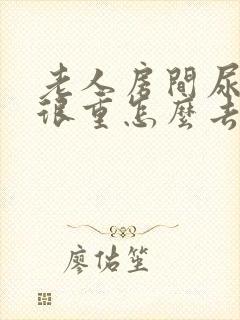 老人房間尿
很重怎麼去
廖佑笙